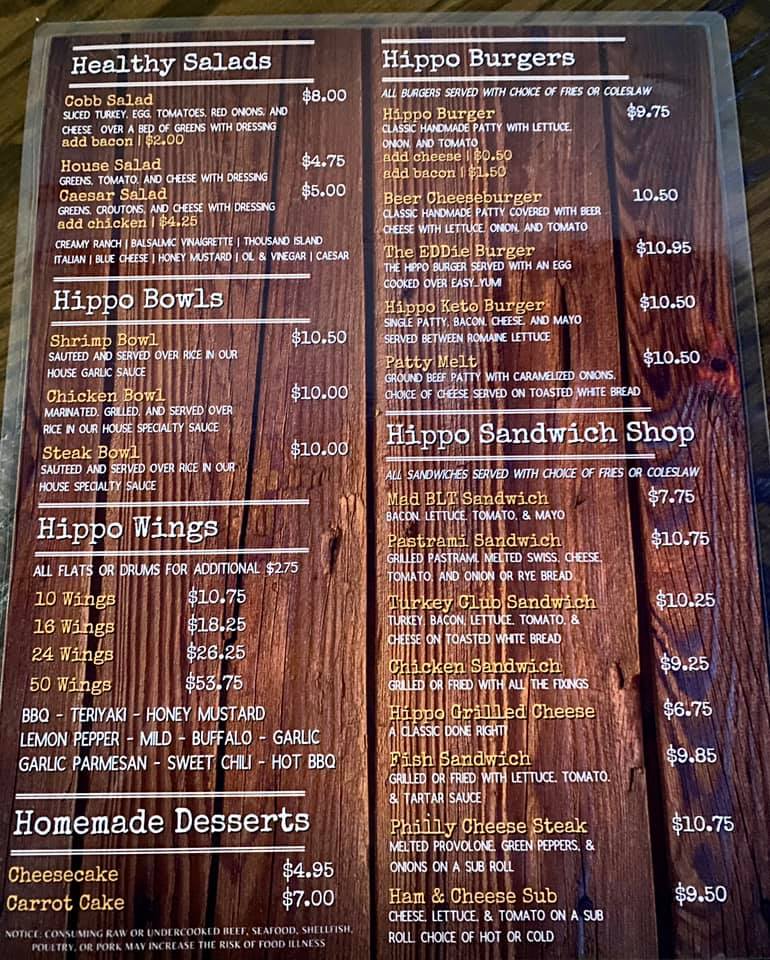 Healthy Salads
Cobb Salad $8.00
SLICED TURKEY, EGG, TOMATOES, RED ONIONS, AND
CHEESE OVER A BED OF GREENS WITH DRESSING
add bacon | $2.00
House Salad $4.75
GREENS, TOMATO, AND CHEESE WITH DRESSING
Caesar Salad $5.00
GREENS, CROUTONS, AND CHEESE WITH DRESSING
add chicken | $4.25
CREAMY RANCH | BALSALMIC VINAIGRETTE | THOUSAND ISLAND
ITALIAN | BLUE CHEESE | HONEY MUSTARD | OIL & VINEGAR | CAESAR
Hippo Bowls
Shrimp Bowl $10.50
SAUTEED AND SERVED OVER RICE IN OUR
HOUSE GARLIC SAUCE
Chicken Bowl $10.00
MARINATED, GRILLED, AND SERVED OVER
RICE IN OUR HOUSE SPECIALTY SAUCE
Steak Bowl $10.00
SAUTEED AND SERVED OVER RICE IN OUR
HOUSE SPECIALTY SAUCE
Hippo Wings
ALL FLATS OR DRUMS FOR ADDITIONAL $2.75
10 Wings $10.75
16 Wings $18.25
24 Wings $26.25
50 Wings $53.75
BBQ - TERIYAKI - HONEY MUSTARD
LEMON PEPPER - MILD - BUFFALO - GARLIC
GARLIC PARMESAN - SWEET CHILI - HOT BBQ
Homemade Desserts
Cheesecake $4.95
Carrot Cake $7.00
NOTICE: CONSUMING RAW OR UNDERCOOKED BEEF, SEAFOOD, SHELLFISH,
POULTRY, OR PORK MAY INCREASE THE RISK OF FOOD ILLNESS
Hippo Burgers
ALL BURGERS SERVED WITH CHOICE OF FRIES OR COLESLAW
Hippo Burger $9.75
CLASSIC HANDMADE PATTY WITH LETTUCE,
ONION, AND TOMATO
add cheese | $0.50
add bacon | $1.50
Beer Cheeseburger 10.50
CLASSIC HANDMADE PATTY COVERED WITH BEER
CHEESE WITH LETTUCE, ONION, AND TOMATO
The EDDie Burger $10.95
THE HIPPO BURGER SERVED WITH AN EGG
COOKED OVER EASY...YUM!
Hippo Keto Burger $10.50
SINGLE PATTY, BACON, CHEESE, AND MAYO
SERVED BETWEEN ROMAINE LETTUCE
Patty Melt $10.50
GROUND BEEF PATTY WITH CARAMELIZED ONIONS,
CHOICE OF CHEESE SERVED ON TOASTED WHITE BREAD
Hippo Sandwich Shop
ALL SANDWICHES SERVED WITH CHOICE OF FRIES OR COLESLAW
Mad BLT Sandwich $7.75
BACON, LETTUCE, TOMATO, & MAYO
Pastrami Sandwich $10.75
GRILLED PASTRAMI, MELTED SWISS, CHEESE,
TOMATO, AND ONION OR RYE BREAD
Turkey Club Sandwich $10.25
TURKEY, BACON, LETTUCE, TOMATO, &
CHEESE ON TOASTED WHITE BREAD
Chicken Sandwich $9.25
GRILLED OR FRIED WITH ALL THE FIXINGS
Hippo Grilled Cheese $6.75
A CLASSIC DONE RIGHT!
Fish Sandwich $9.85
GRILLED OR FRIED WITH LETTUCE, TOMATO,
& TARTAR SAUCE
Philly Cheese Steak $10.75
MELTED PROVOLONE, GREEN PEPPERS, &
ONIONS ON A SUB ROLL
Ham & Cheese Sub $9.50
CHEESE, LETTUCE, & TOMATO ON A SUB
ROLL. CHOICE OF HOT OR COLD